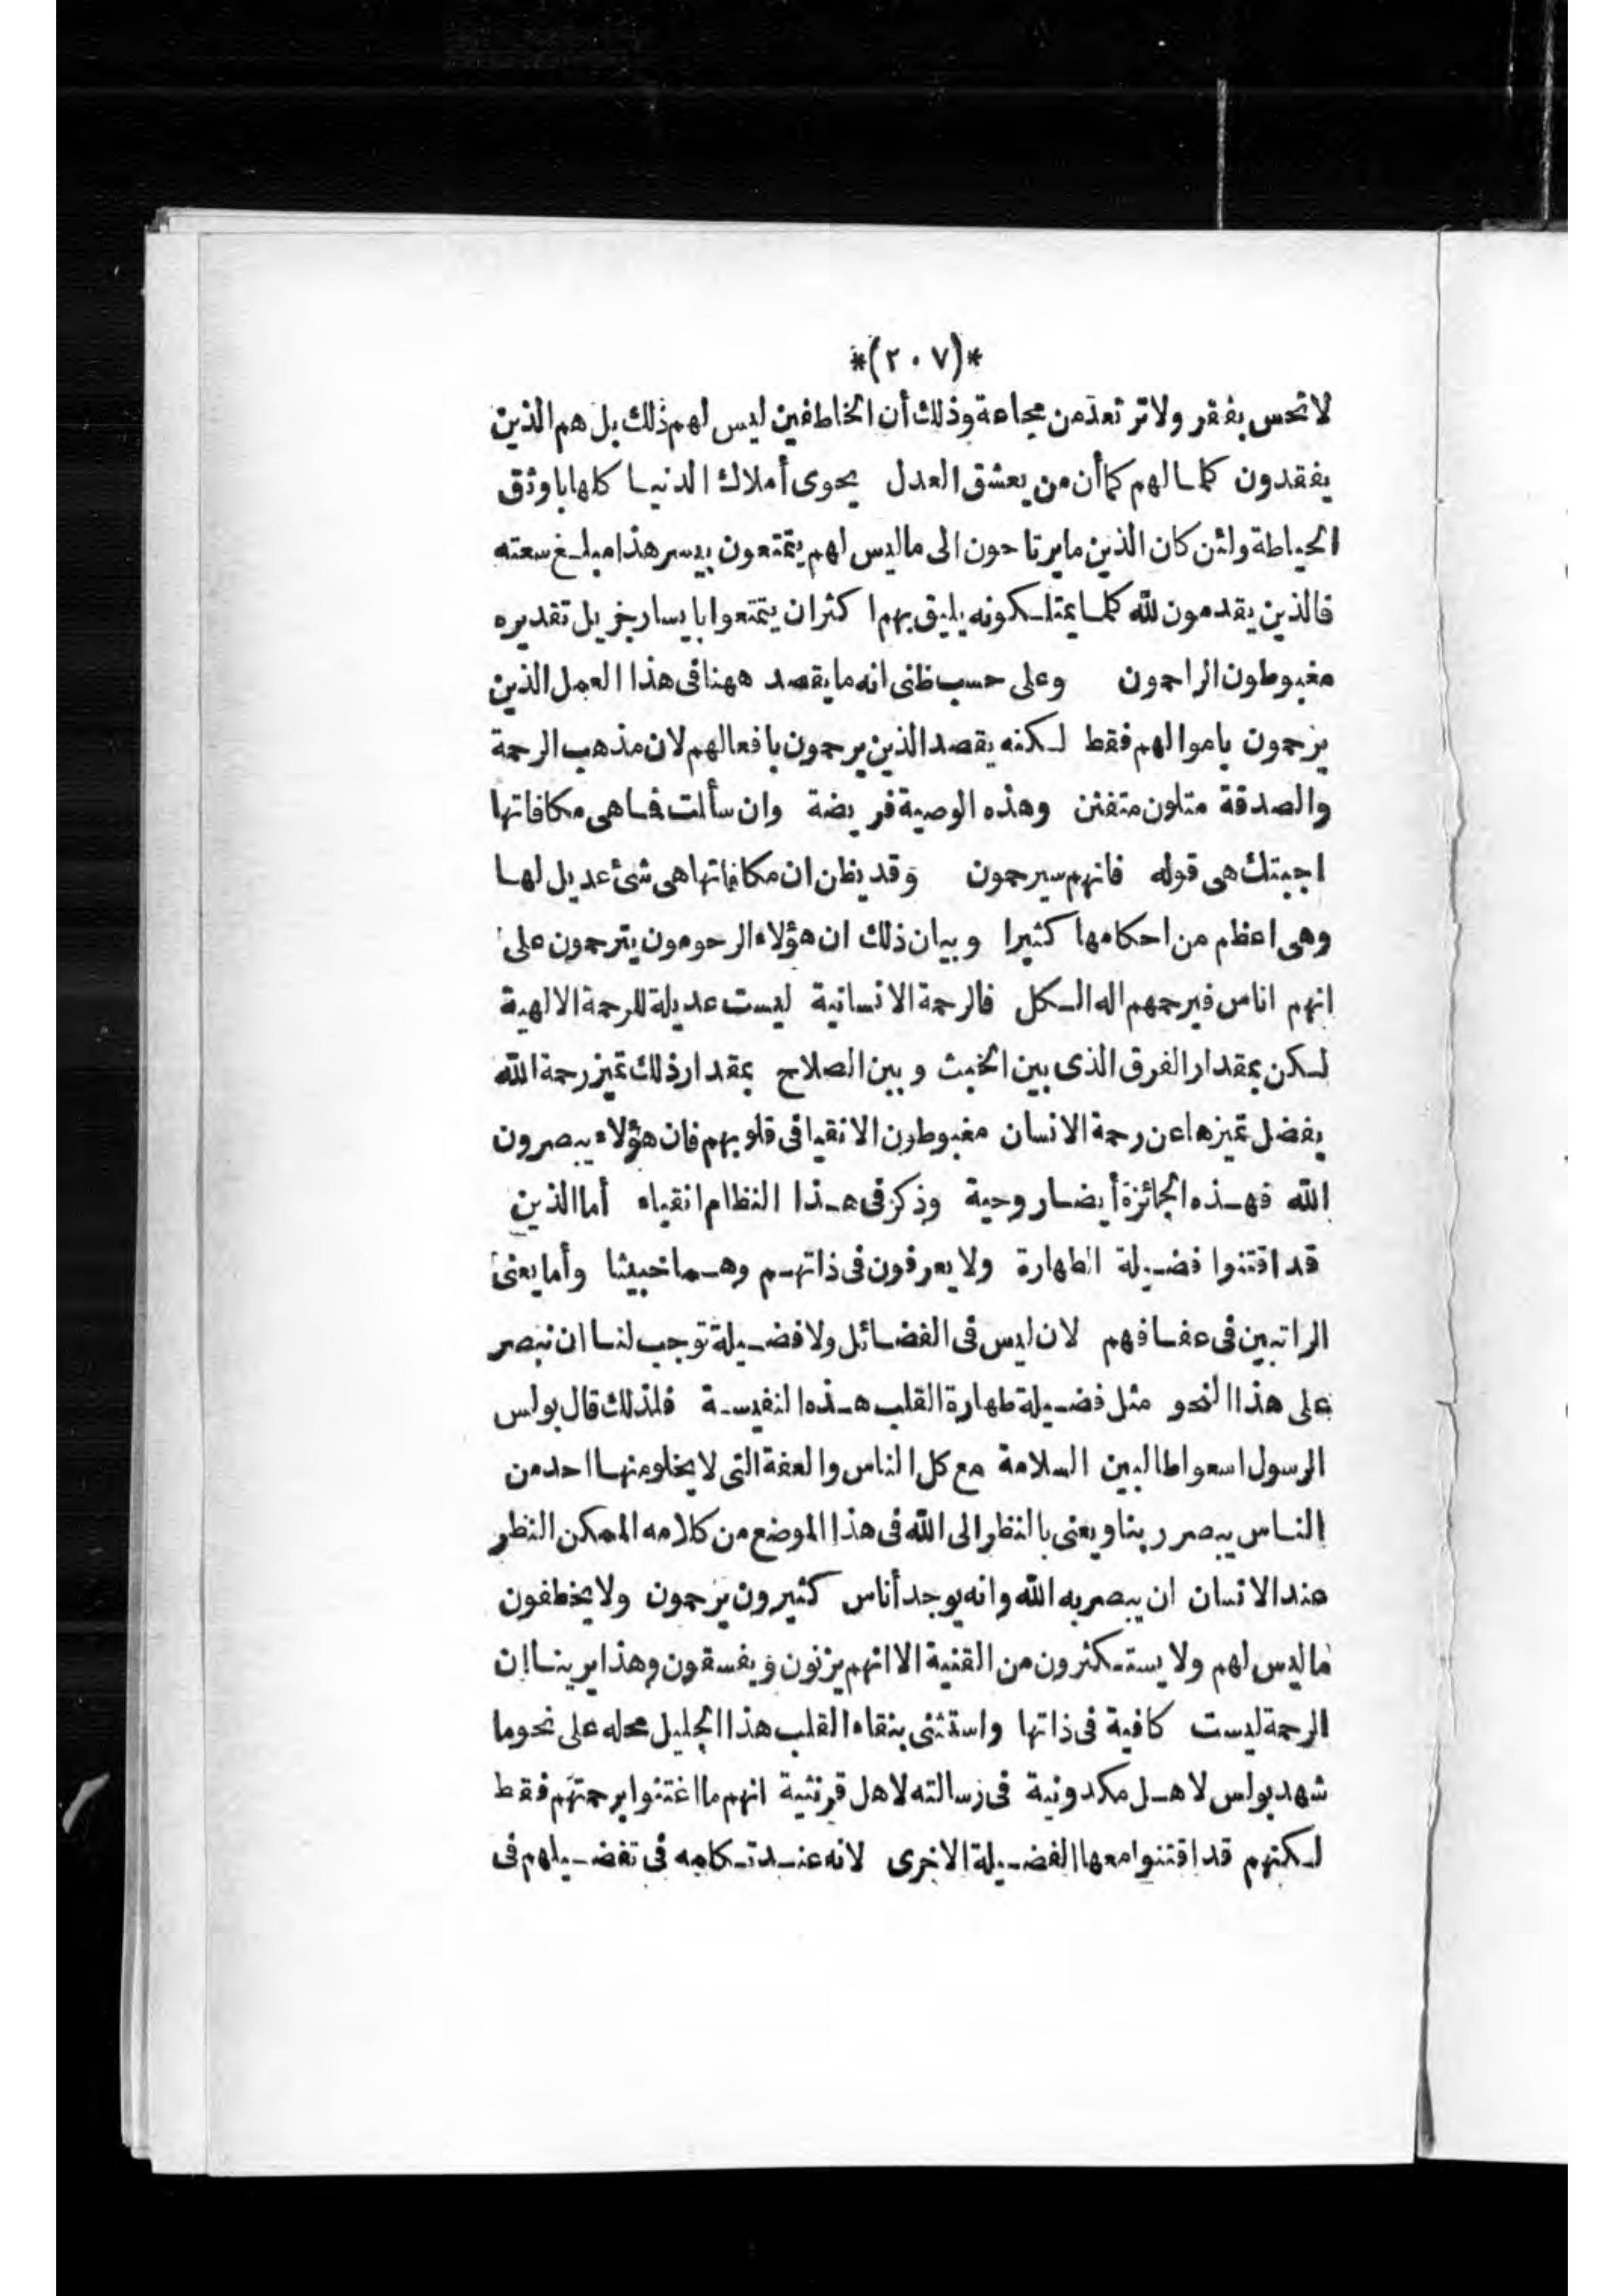 *(٢٠٧)*
لا تحس بفقر ولا ترتعد من مجاعة وذلك أن الخاطفين ليس لهم ذلك بل هم الذين
يفقدون كلما لهم كما أن من يعشق العدل يحوى أملاك الدنيا كلها باوثق
الحياطة ولئن كان الذين ما يرتاحون الى ما ليس لهم يتمتعون بيسر هذا مبلغ سعته
فالذين يقدمون لله كلما يمتلكونه يليق بهم اكثران يتمتعوا بايسار جزيل تقديره
مغبوطون الراحمون وعلى حسب ظنى انه ما يقصد ههنا فى هذا العمل الذين
يرحمون باموالهم فقط لكنه يقصد الذين يرحمون بافعالهم لان مذهب الرحمة
والصدقة متلون متفنن وهذه الوصية فريضة وان سألت فما هى مكافاتها
اجبتك هى قوله فانهم سيرحمون وقد يظن ان مكافاتها هى شئ عديل لها
وهى اعظم من احكامها كثيرا وبيان ذلك ان هؤلاء الرحومون يترحمون على
انهم اناس فيرحمهم اله الكل فالرحمة الانسانية ليست عديلة للرحمة الالهية
لكن بمقدار الفرق الذى بين الخبث وبين الصلاح بمقدار ذلك تميز رحمة الله
يفضل تميزها عن رحمة الانسان مغبوطون الانقيا فى قلوبهم فان هؤلاء يبصرون
الله فهذه الجائزة أيضا روحية وذكر فى هذا النظام انقياء أما الذين
قد اقتنوا فضيلة الطهارة ولا يعرفون فى ذاتهم وهما خبيثا وأما يعنى
الراتبين فى عفافهم لان ليس فى الفضائل ولا فضيلة توجب لنا ان نبصر
على هذا النحو مثل فضيلة طهارة القلب هذه النفيسة فلذلك قال بولس
الرسول اسعوا طالبين السلامة مع كل الناس والعفة التى لا يخلو منها احد من
الناس يبصر ربنا ويعنى بالنظر الى الله فى هذا الموضع من كلامه الممكن النظر
عند الانسان ان يبصر به الله وانه يوجد أناس كثيرون يرحمون ولا يخطفون
ما ليس لهم ولا يستكثرون من القنية الا انهم يزنون ويفسقون وهذا يرينا ان
الرحمة ليست كافية فى ذاتها واستثنى بنقاء القلب هذا الجليل محله على نحو ما
شهد بولس لاهل مكدونية فى رسالته لاهل قرنثية انهم ما اغتنوا برحمتهم فقط
لكنهم قد اقتنوا معها الفضيلة الاخرى لانه عند تكلمه فى تفضيلهم فى